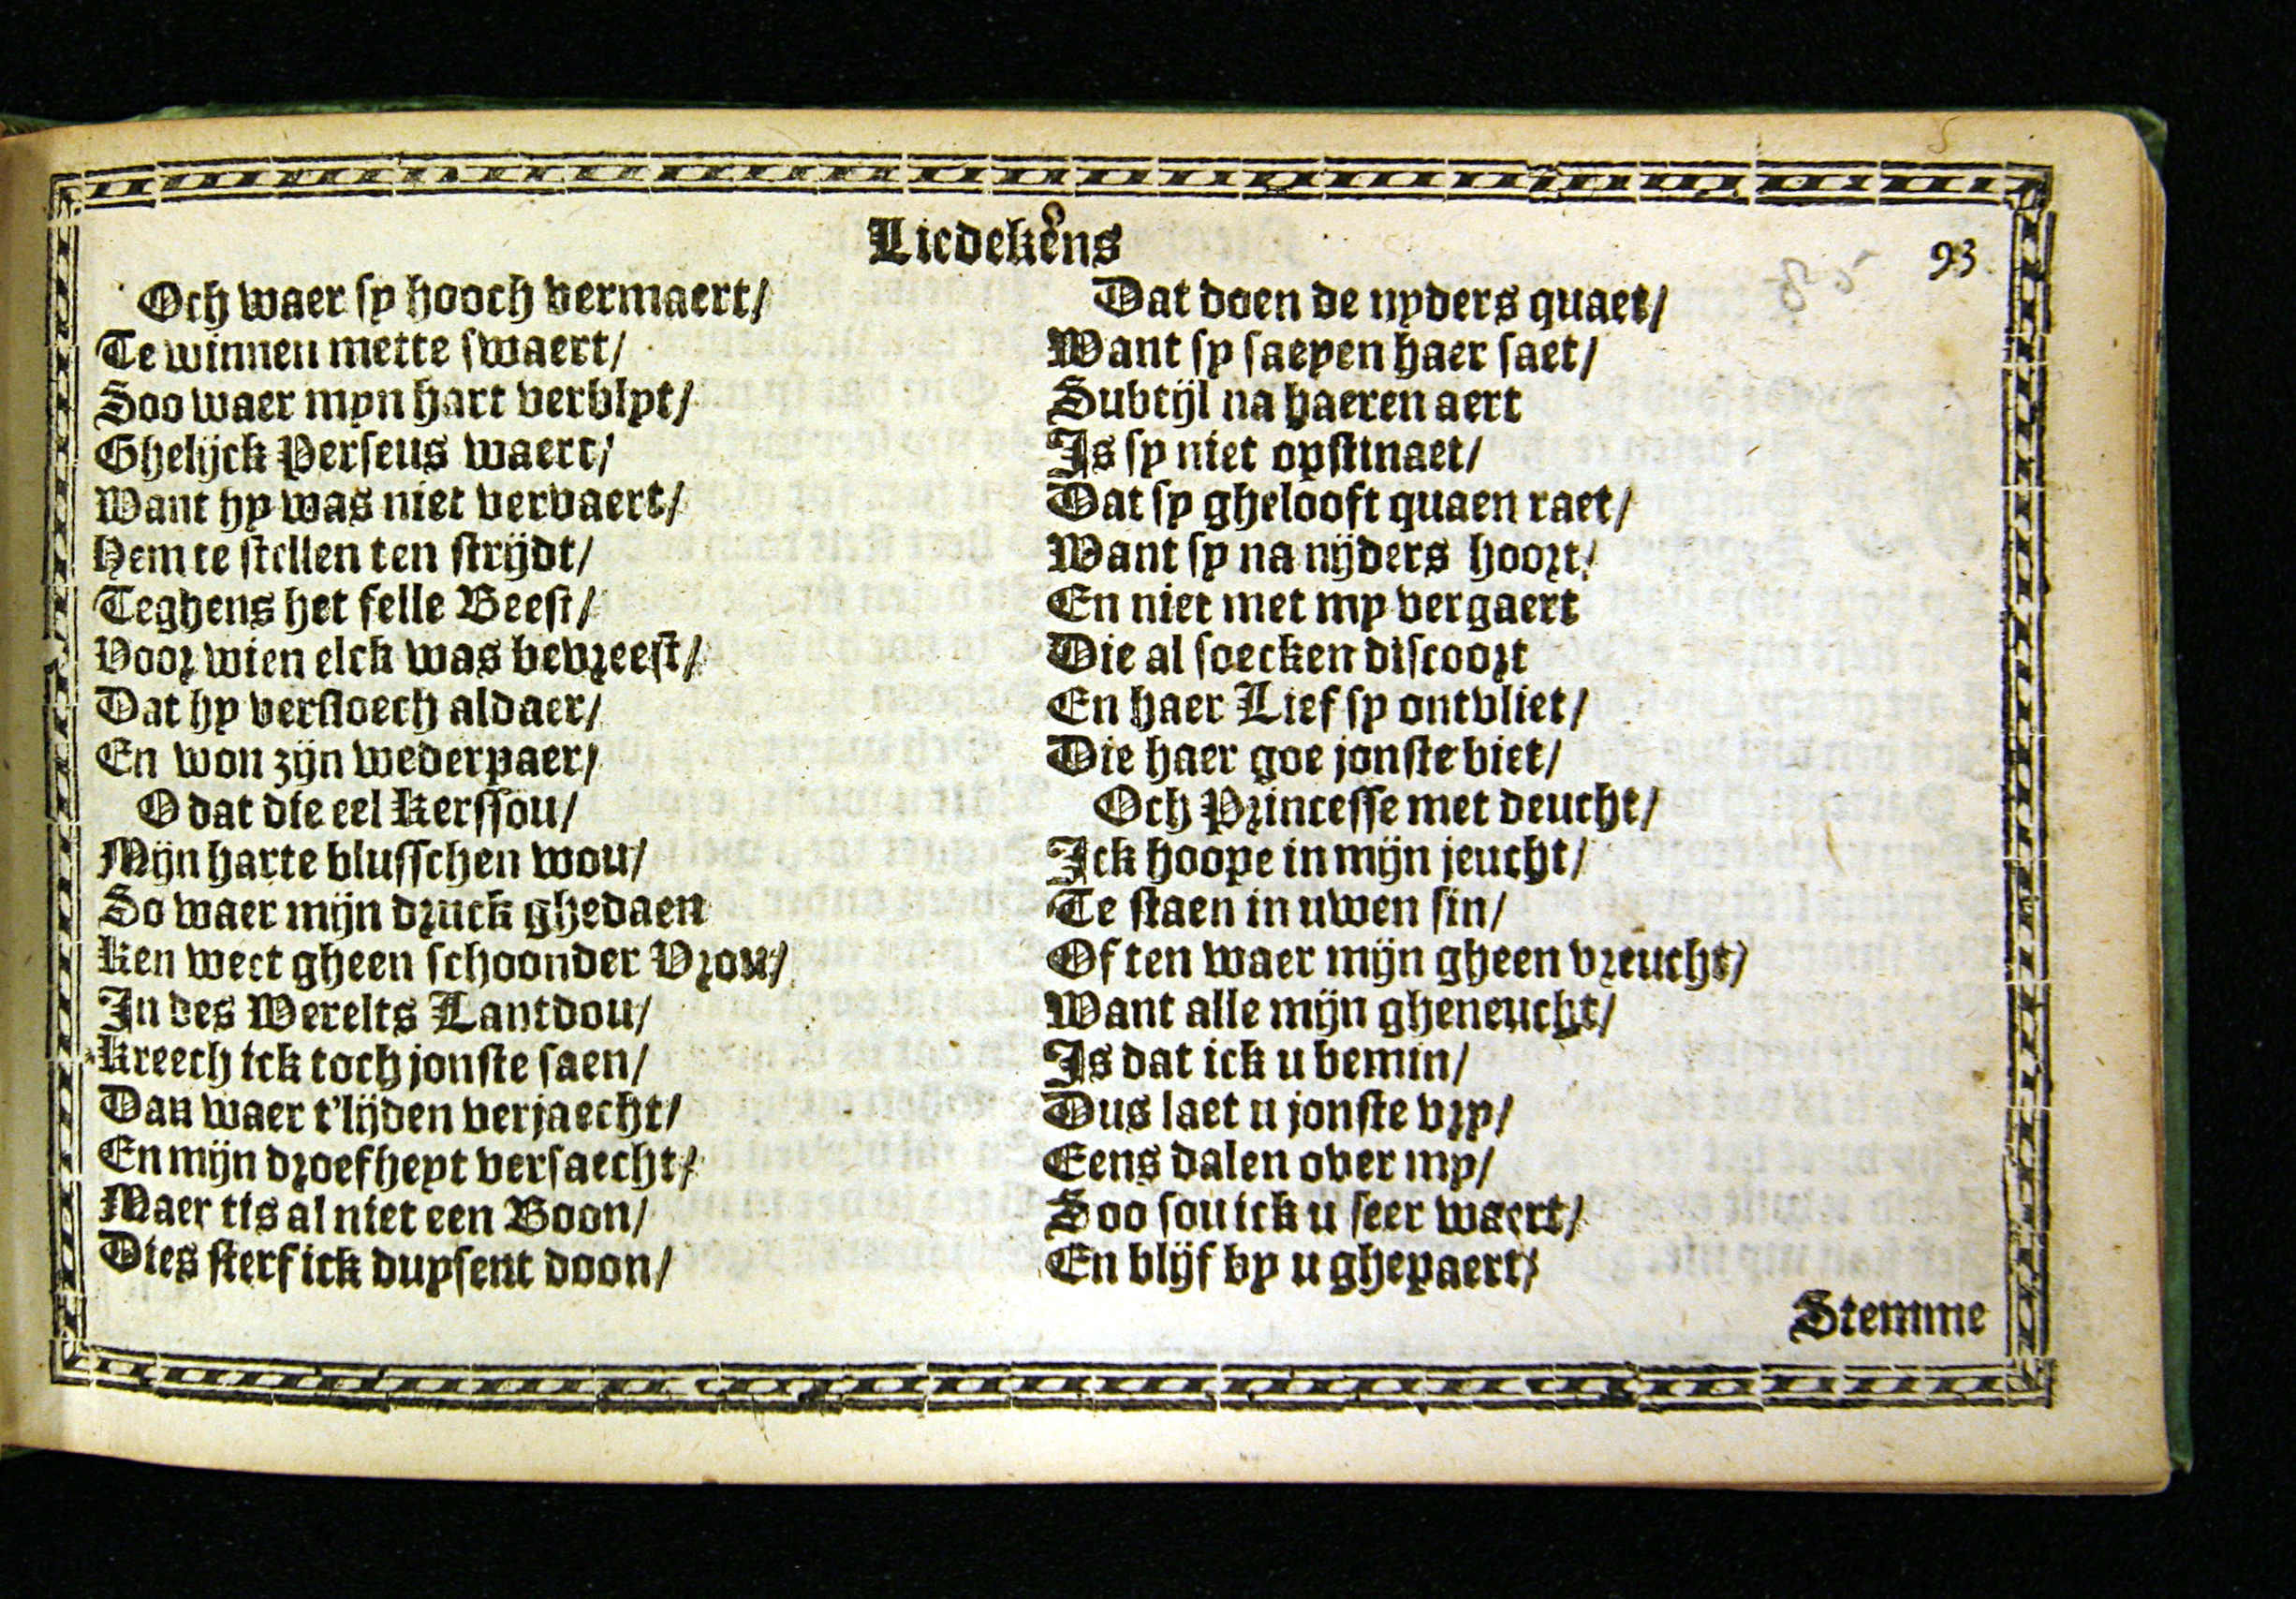 Liedekens
93
Och waer sy hooch vermaert/
Te winnen mette swaert/
Soo waer myn hart verblyt/
Ghelijck Perseus waert/
Want hy was niet vervaert/
Hem te stellen ten strijdt/
Teghens het felle Beest/
Voor wien elck was bevreest/
Dat hy versloech aldaer/
En won zijn wederpaer/
O dat die eel Kerssou/
Mijn harte blusschen wou/
So waer mijn druck ghedaen
Ken weet gheen schoonder Vrou/
In des Werelts Lantdou/
Kreech ick toch jonste saen/
Dan waer t'lijden verjaecht/
En mijn droefheyt versaecht/
Maer tis al niet een Boon/
Dies sterf ick duysent doon/
Dat doen de nyders quaet/
Want sy saeyen haer saet/
Subtijl na haeren aert
Is sy niet opstinaet/
Dat sy ghelooft quaen raet/
Want sy na nijders hoort/
En niet met my vergaert
Die al soecken discoort
En haer Lief sy ontvliet/
Die haer goe jonste biet/
Och Princesse met deucht/
Ick hoope in mijn jeucht/
Te staen in uwen sin/
Of ten waer mijn gheen vreucht/
Want alle mijn gheneucht/
Is dat ick u bemin/
Dus laet u jonste vry/
Eens dalen over my/
Soo sou ick u seer waert/
En blijf by u ghepaert/
Stemme